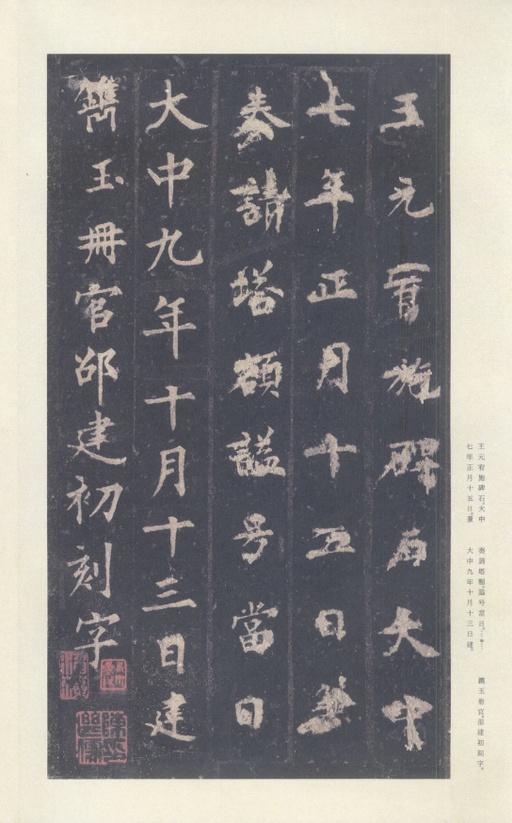 王元宥施碑石大中
七年正月十五日兼
奏請塔額謚号當日
大中九年十月十三日建
鐫玉冊官邵建初刻字
王元宥施碑石。大中
七年正月十五日。兼
奏請塔額。謚号當日。
大中九年十月十三日建。
鐫玉冊官。邵建初刻字。